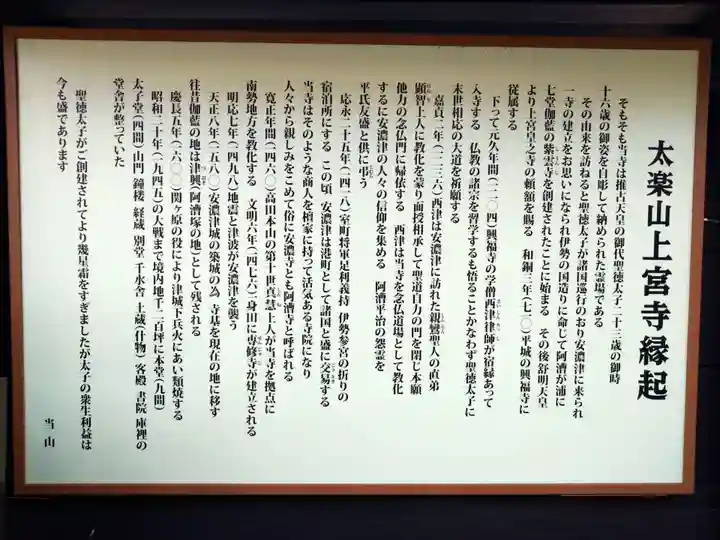 太楽山上宮寺縁起
そもそも当寺は推古天皇の御代聖徳太子二十三歳の御時
十六歳の御姿を自彫して納められた霊場である
その由来を訪ねると聖徳太子が諸国巡行のおり安濃津に来られ
一寺の建立をお思いになられ伊勢の国造りに命じて阿漕が浦に
七堂伽藍の紫雲寺を創建されたことに始まる その後舒明天皇
より上宮皇之寺の頼額を賜る 和銅三年(七一〇)平城の興福寺に
従属する
下って元久年間(一二〇四)興福寺の学僧西津律師が宿縁あって
入寺する 仏教の諸宗を習学するも悟ることかなわず聖徳太子に
末世相応の大道を祈願する
嘉貞二年(一二三六)西津は安濃津に訪れた親鸞聖人の直弟
顕智上人に教化を蒙り面授相承して聖道自力の門を閉じ本願
他力の念仏門に帰依する 西津は当寺を念仏道場として教化
するに安濃津の人々の信仰を集める 阿漕平治の怨霊を
平氏友盛と供に弔う
応永二十五年(一四一八)室町将軍足利義持 伊勢参宮の折りの
宿泊所にする この頃 安濃津は港町として諸国と盛に交易する
当寺はそのような商人を檀家に持って活気ある寺院になり
人々から親しみをこめて俗に安濃寺とも阿漕寺と呼ばれる
寛正年間(一四六〇)高田本山の第十世真慧上人が当寺を拠点に
南勢地方を教化する 文明六年(一四七六)一身田に専修寺が建立される
明応七年(一四九八)地震と津波が安濃津を襲う
天正八年(一五八〇)安濃津城の築城の為 寺基を現在の地に移す
往昔伽藍の地は津興(阿漕塚の地)として残される
慶長五年(一六〇〇)関ヶ原の役により津城下兵火にあい類焼する
昭和二十年(一九四五)の大戦まで境内地千二百坪に本堂(九間)
太子堂(四間)山門 鐘楼 経蔵 別堂 手水舎 土蔵(什物)客殿 書院 庫裡の
堂舎が整っていた
聖徳太子がご創建されてより幾星霜をすぎましたが太子の衆生利益は
今も盛であります
当山